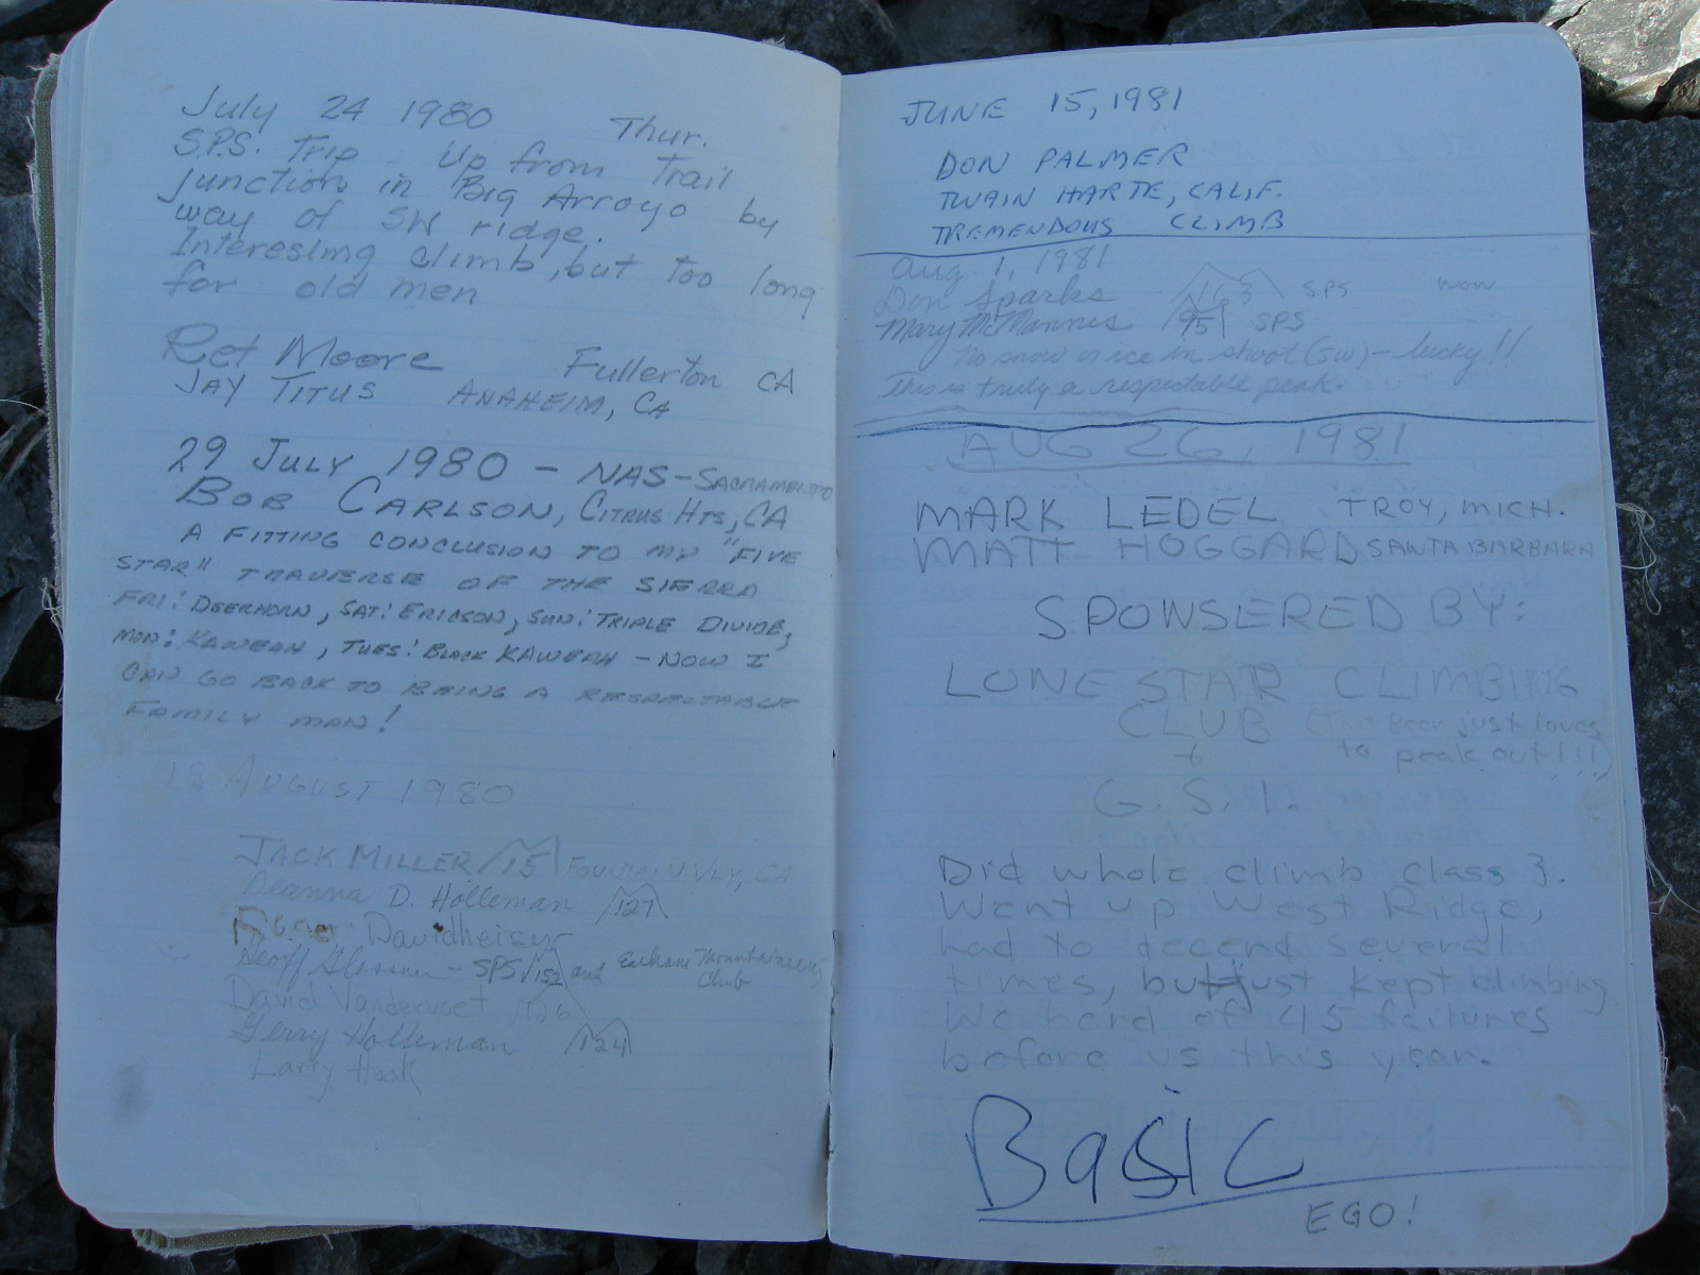 July 24 1980 Thur.
S.P.S. Trip Up from Trail
junction in Big Arroyo by
way of SW ridge.
Interesting climb, but too long
for old men
Ret Moore Fullerton CA
JAY TITUS ANAHEIM, CA
29 JULY 1980 - NAS-SACRAMENTO
BOB CARLSON, CITRUS HTS, CA
A FITTING CONCLUSION TO MY "FIVE
STAR" TRAVERSE OF THE SIERRA
FRI: DEERHORN, SAT: ERICSON, SUN: TRIPLE DIVIDE,
MON: KAWEAH, TUES: BLACK KAWEAH - NOW I
CAN GO BACK TO BEING A RESPECTABLE
FAMILY MAN!
18 AUGUST 1980
JACK MILLER 15 FOUNTAIN VLY, CA
Deanna D. Holleman 127
Davidheiser
Geoff - SPS 152 and Mountaineering
Club
David Vandervoet 126
Gerry Holleman 124
Larry Hoak
JUNE 15, 1981
DON PALMER
TWAIN HARTE, CALIF.
TREMENDOUS CLIMB
Aug 1, 1981
Don Sparks 163 SPS now
Mary McMannes 95 SPS
No snow or ice in shoot (SW) - lucky!!
This is truly a respectable peak.
AUG 26, 1981
MARK LEDEL TROY, MICH.
MATT HOGGARD SANTA BARBARA
SPOWSERED BY:
LONE STAR CLIMBING
CLUB ( Beer just loves
+ to peak out!!!)
G.S.I.
Did whole climb class 3.
Went up West Ridge,
had to decend several
times, but just kept climbing
We herd of 45 failures
before us this year.
Basic
EGO!